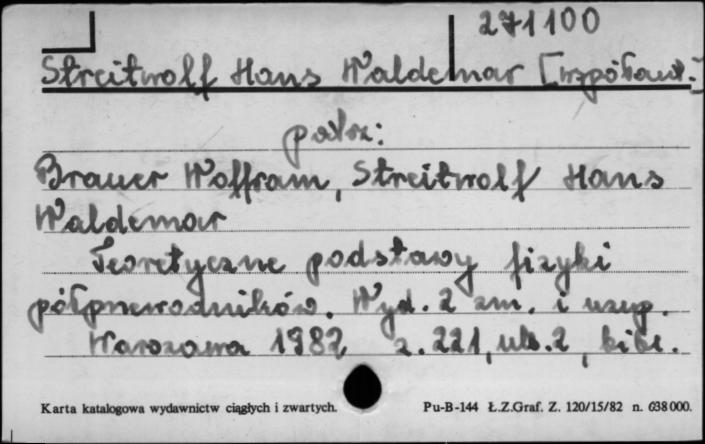 271100
Streitwolf Hans Waldemar [współaut.]
patrz:
Brauer Wolfram, Streitwolf Hans
Waldemar
Teoretyczne podstawy fizyki
półprzewodników. Wyd. 2 zm. i uzup.
Warszawa 1982 s. 221, nlb. 2, bibl.
Karta katalogowa wydawnictw ciągłych i zwartych. Pu-B-144 Ł.Z.Graf. Z. 120/15/82 n. 638000.